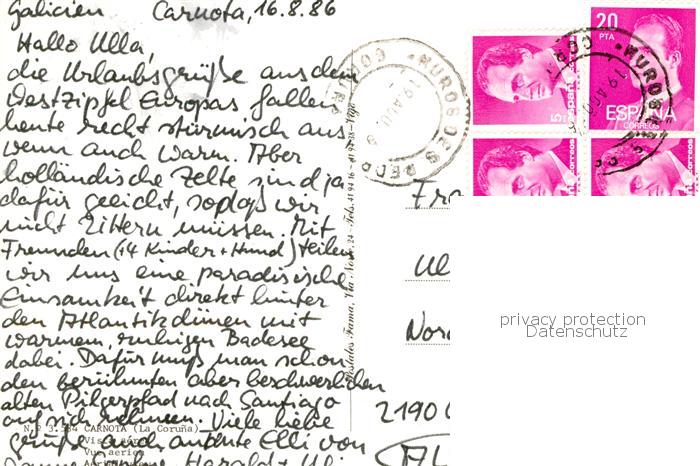 Galicien Carnota, 16.8.86
Hallo Ulla,
die Urlaubsgrüße aus dem
Westzipfel Europas fallen
heute recht stürmisch aus
wenn auch warm. Aber
holländische Zelte sind ja
dafür geeicht, sodaß wir
nicht zittern müssen. Mit
Freunden (+4 Kinder + Hund) teilen
wir uns eine paradisische
Einsamkeit direkt hinter
den Atlantikdünen mit
warmem, ruhigen Badesee
dabei. Dafür muß man schon
den berühmten aber beschwerlichen
alten Pilgerpfad nach Santiago
auf sich nehmen. Viele liebe
Grüße auch an Elli von
Harald + Uli
N.º 3.584 CARNOTA (La Coruña)
Vista aérea
Vue aerien
20
PTA
ESPAÑA
CORREOS
5
PTA
España
correos
correos
correos
MUROS
CORREOS
19 AGO
MUROS
Fra
Ul
Nord
2190 C
privacy protection
Datenschutz